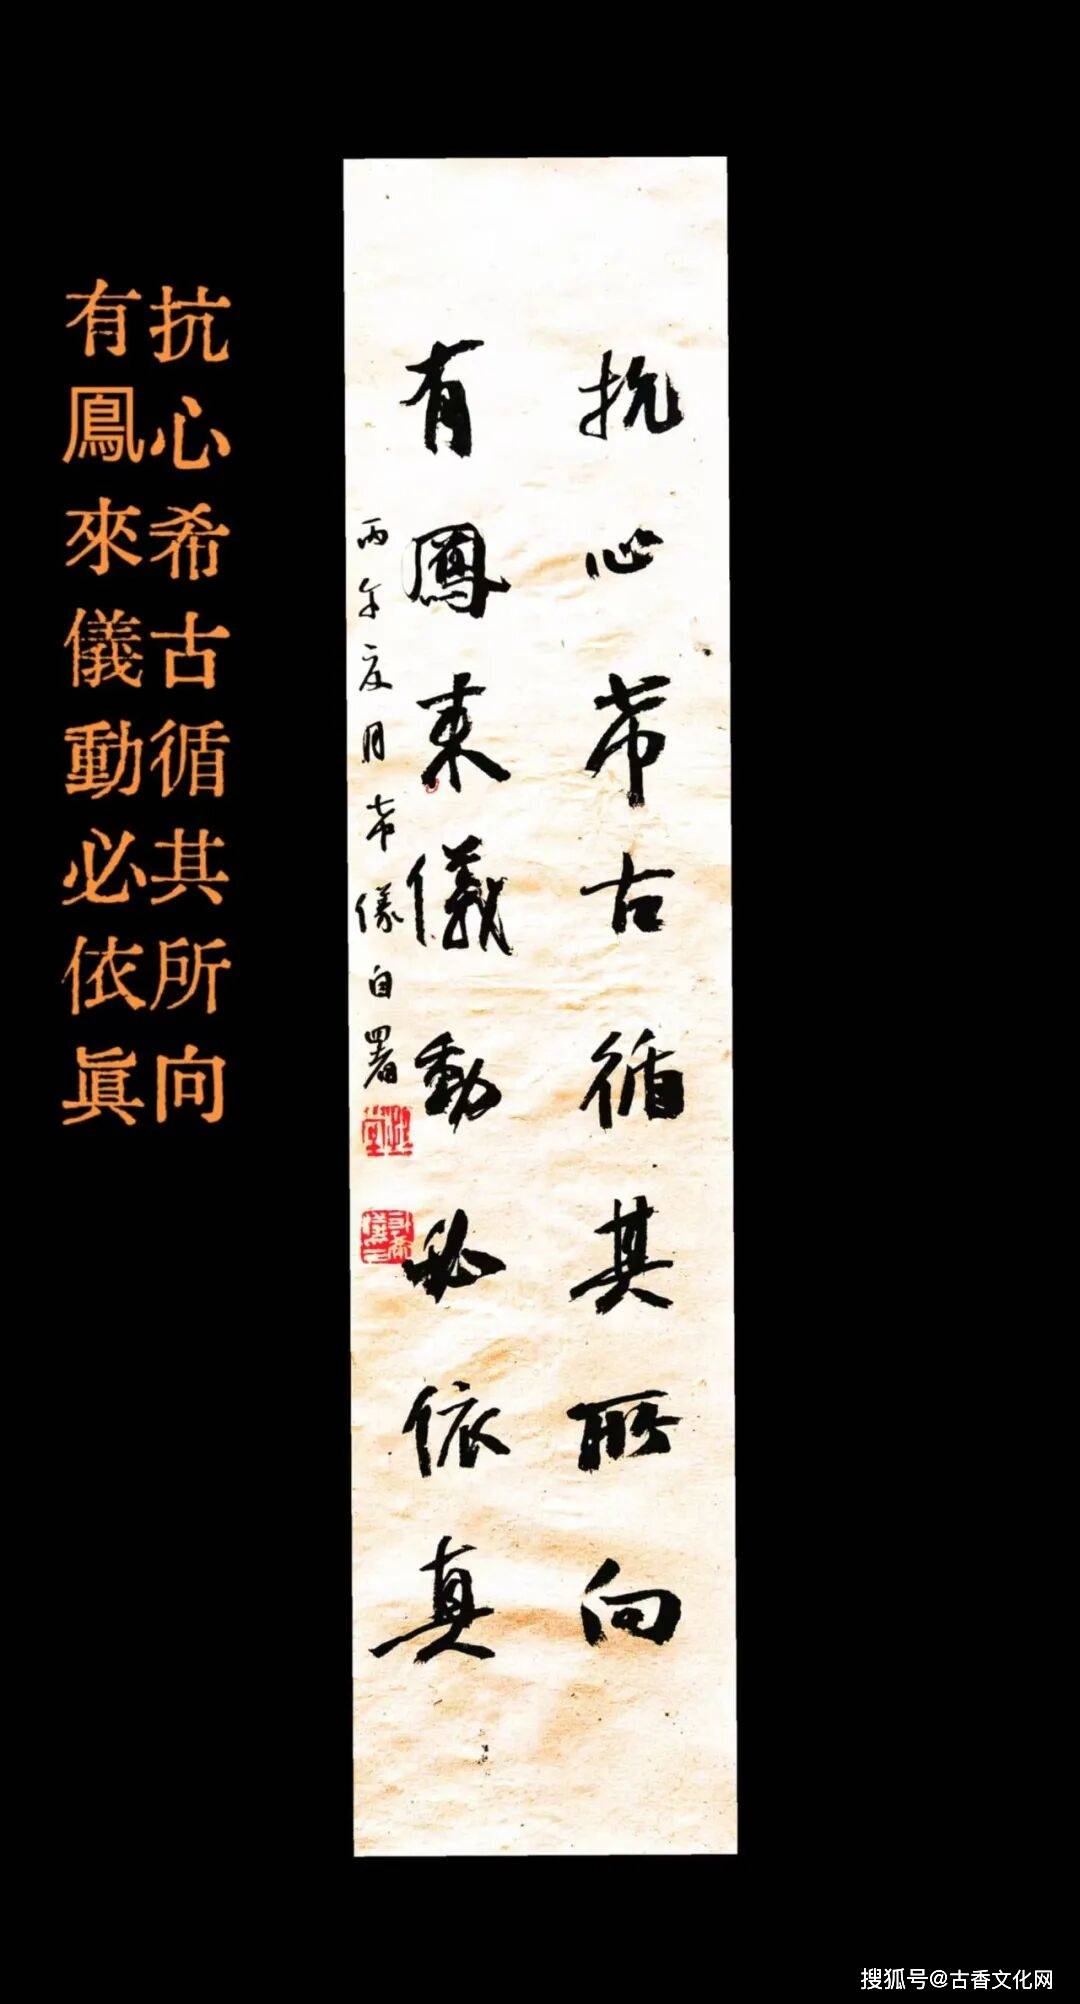 抗心希古循其所向
有鳳來儀動必依眞
抗心希古循其所向
有鳳來儀動必依真
丙午夏月希儀自署
搜狐号@古香文化网